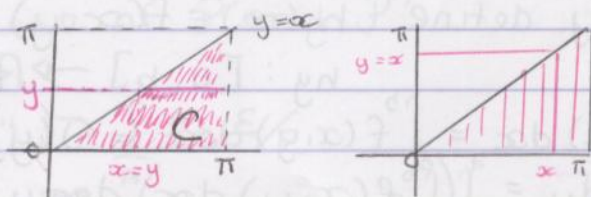 π y=x
y C
0 x=y π
π
y=x
0 x π